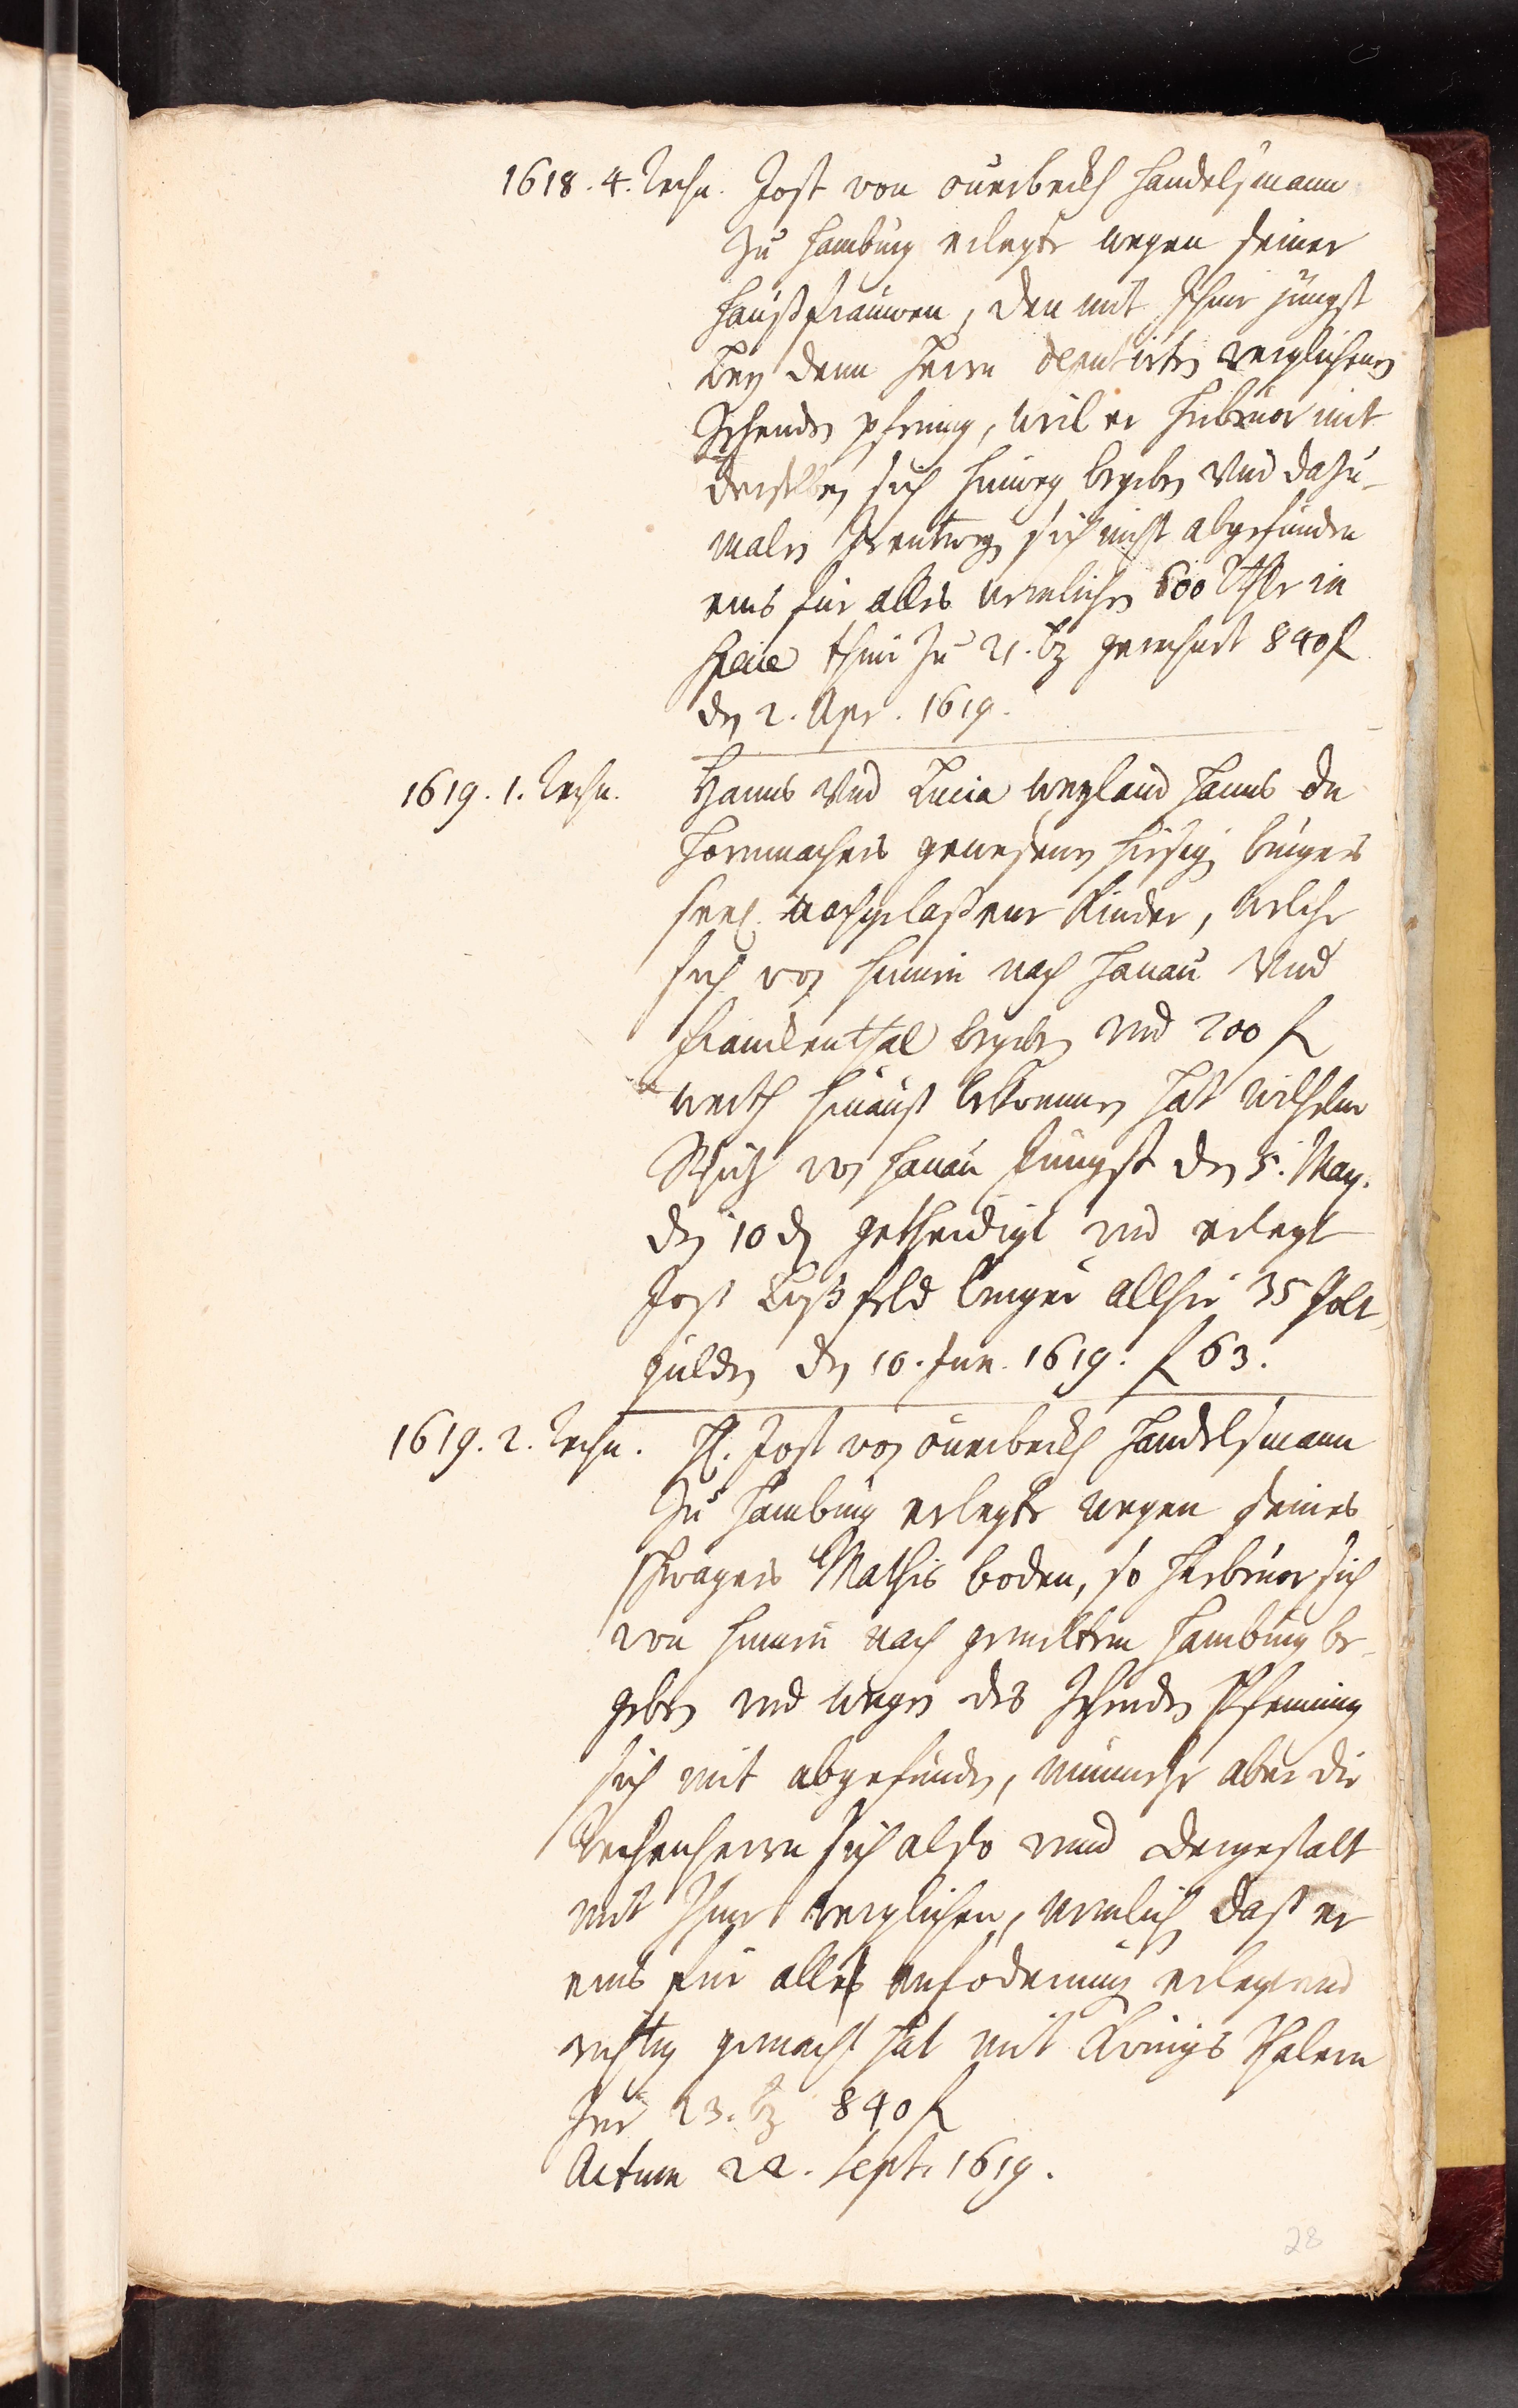 1618. 4. Rechn. Jost von ouerbeckh Handelsmann
Zu Hamburg erlegte wegen seiner
haußfrauwen, den mit Ihme jüngst
bey denn herrn deputirten verglichenen
Zehenden pfennig, weil er hiebeuor mit
derselben sich hinweg begeben vnd dazu-
malen sich nicht abgefunden
eins für alles nemlichen 600 Rthlr in
specie thun Zu 21. bz gerechnet 840 f
den 2. Apr. 1619.
1619. 1. Rechn. Hanns vnd Lucia weyland Hanns de
Hornmachers gewesenen hiesigen burgers
seel. nachgelaßene Kinder, welche
sich von hinnen nach Hanau vnd
Franckenthal begeben vnd 200 f
werth hinauß bekommen hat wilhelm
von Hanau Jüngst den 5. May.
den 10 d getheidigt vnd erlegt
Jost burger allhie 35
gulden den 10. Jun. 1619. f 63.
1619. 2. Rechn. H. Jost von ouerbeckh Handelsmann
Zu Hamburg erlegte wegen seines
Schwagers Mathis boden, so hiebeuor sich
von hinnen nach gemeltem Hamburg be-
geben vnd wegen des Zehenden Pfenning
sich nit abgefunden, nunmehr aber die
Rechenherrn sich also vnnd dergestalt
mit Ihme verglichen, nemlich daß er
eins für alles anfoderung erlegt vnd
richtig gemacht hat mit Königs Thalern
Zue 23. bz 840 f
Actum 22. Sept. 1619.
28